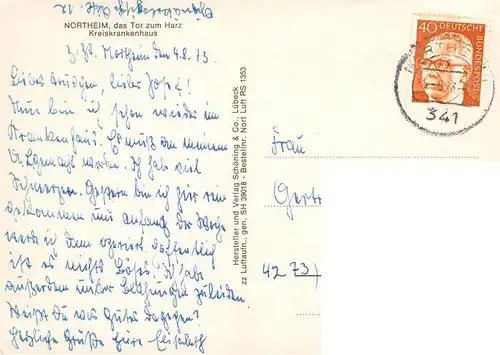 NORTHEIM, das Tor zum Harz
Kreiskrankenhaus
z. Zt. Northeim den 4.8.73
Liebes                 , lieber Josef!
Nun bin ich schon wieder im
Krankenhaus. Es muß an meinem
gemacht werden. Ich hab viel
Schmerzen. Gestern bin ich hier rein
gekommen und anfang der Woche
werde ich dann operiert hoffentlich
ist es nichts Böses. Ich habe
außerdem unter                 zu leiden.
Weißt Du was Gutes dagegen?
Herzliche Grüße Eure Elisabeth
Hersteller und Verlag Schöning & Co., Lübeck
zz Luftaufn., gen. SH 39018 - Bestellnr. Nort Luft RS 1353
40
DEUTSCHE BUNDESPOST
341
Frau
Gertr
4273)